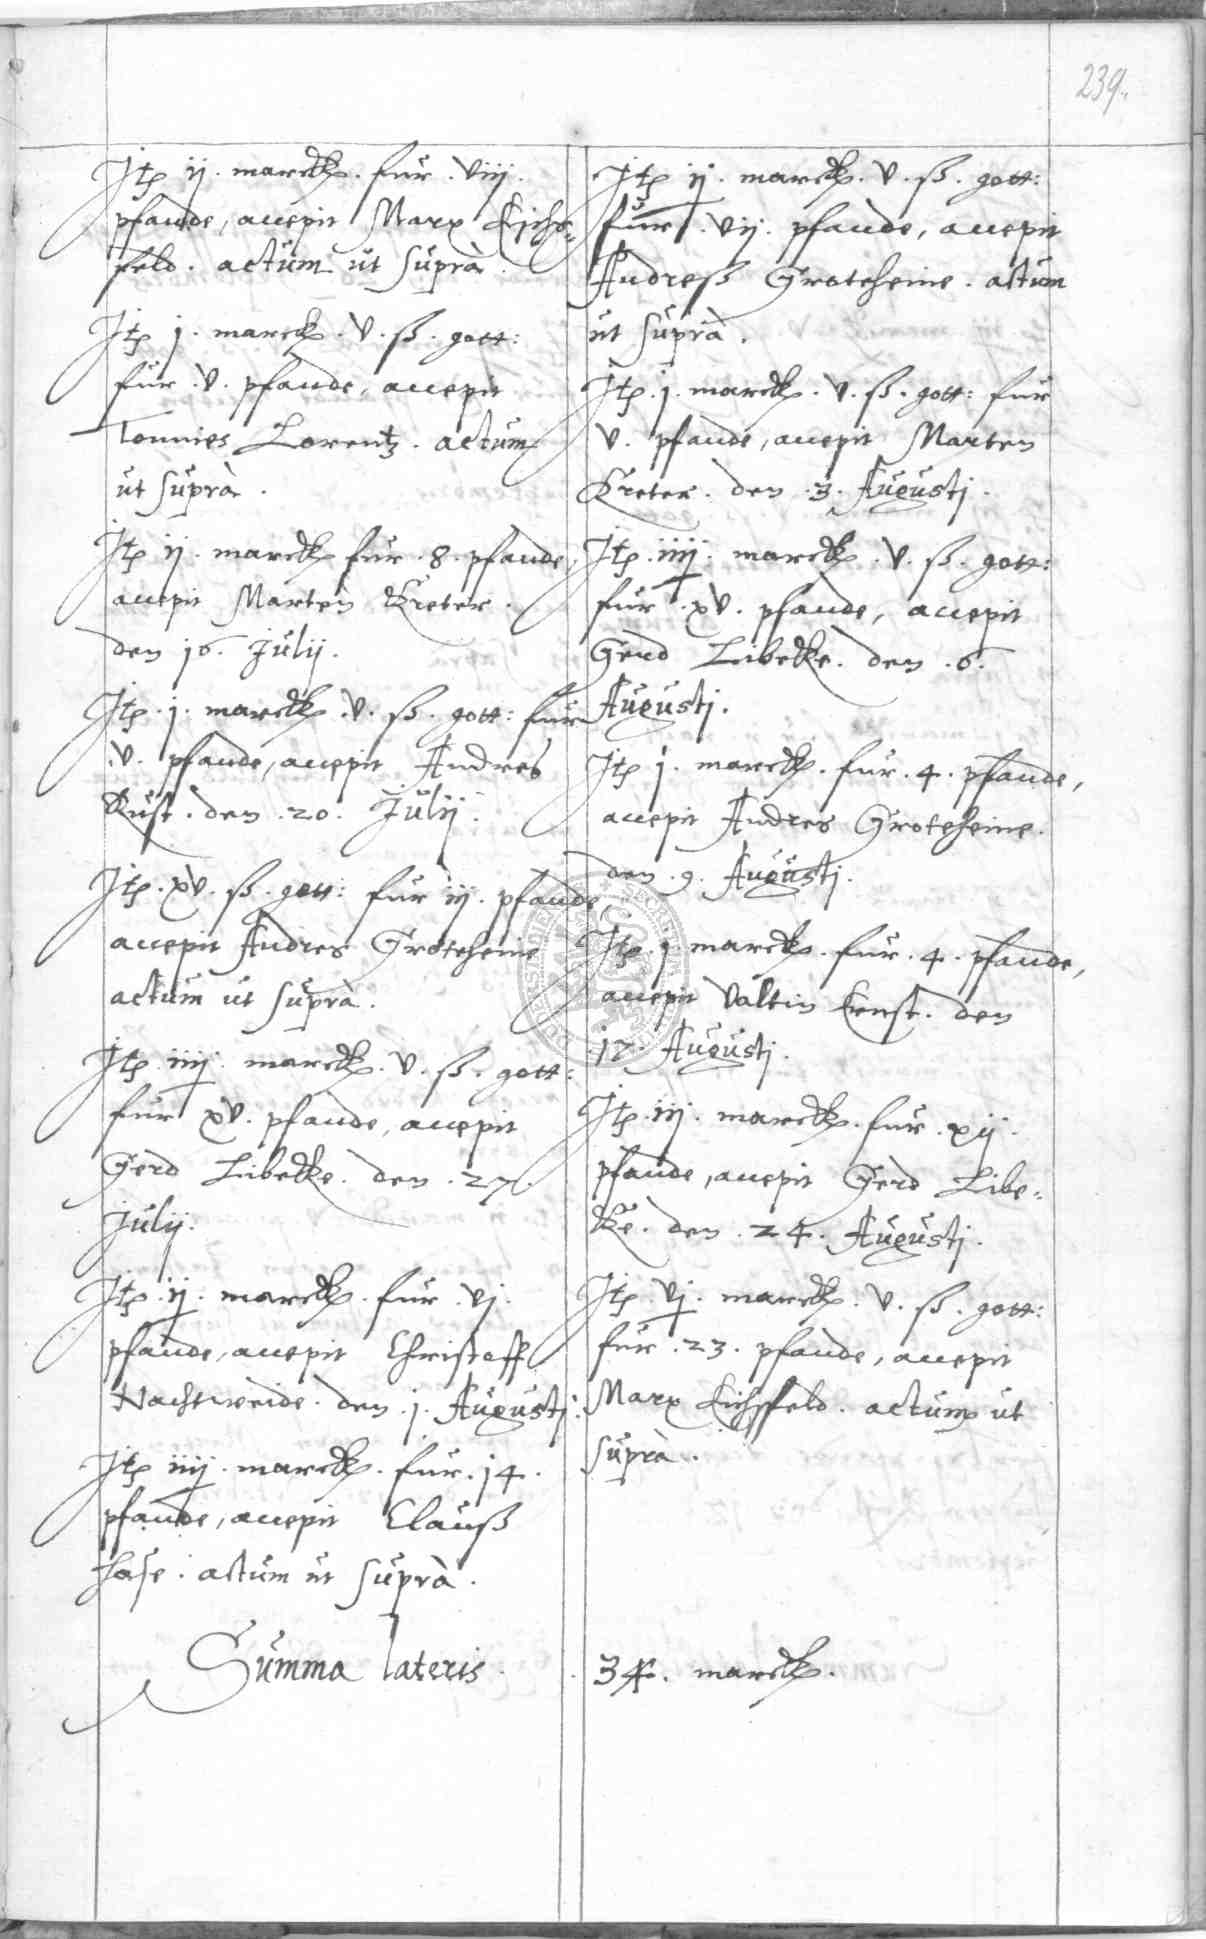 239.
Itp ij. marck. fur. viij.
pfande, accepit Marx Eichs-
feld. actum ut suprà.
Itp j. marck. v. ß. gott:
fur. v. pfande, accepit
Tonnies Lorentz. actum
ut suprà.
Itp ij. marck fur. 8. pfande,
accepit Marten Kreter.
den 16. Julij.
Itp. j. marck. v. ß. gott: fur
v. pfande, accepit Andres
Rust. den. 20. Julij.
Itp. xv. ß. gott: fur iij. pfande,
accepit Andres Groteheine
actum ut suprà.
Itp. iiij. marck. v. ß. gott:
fur xv. pfande, accepit
Gerd Libecke. den. 27.
Julij.
Itp. ij. marck. fur. vj.
pfande, accepit Christoff
Nachtweide. den. j. Augustj.
Itp iiij. marck. fur. 14.
pfande, accepit Clauß
Hase. actum ut suprà.
Itp ij. marck. v. ß. gott:
fur. vij. pfande, accepit
Andreß Groteheine. actum
ut suprà.
Itp. j. marck. v. ß. gott: fur
v. pfande, accepit Marten
Kreter. den. 3. Augustj.
Itp. iiij. marck. v. ß. gott:
fur. xv. pfande, accepit
Gerd Libecke. den. 6.
Augustj.
Itp j. marck. fur. 4. pfande,
accepit Andres Groteheine.
den. 9. Augustj.
Itp. j. marck. fur. 4. pfande,
accepit Valtin Ernst. den
17. Augustj.
Itp. iij. marck. fur. xij.
pfande, accepit Gerd Libe-
ke. den. 24. Augustj.
Itp. vj. marck. v. ß. gott:
fur. 23. pfande, accepit
Marx Eichsfeld. actum ut
suprà.
Summa lateris. 34. marck.